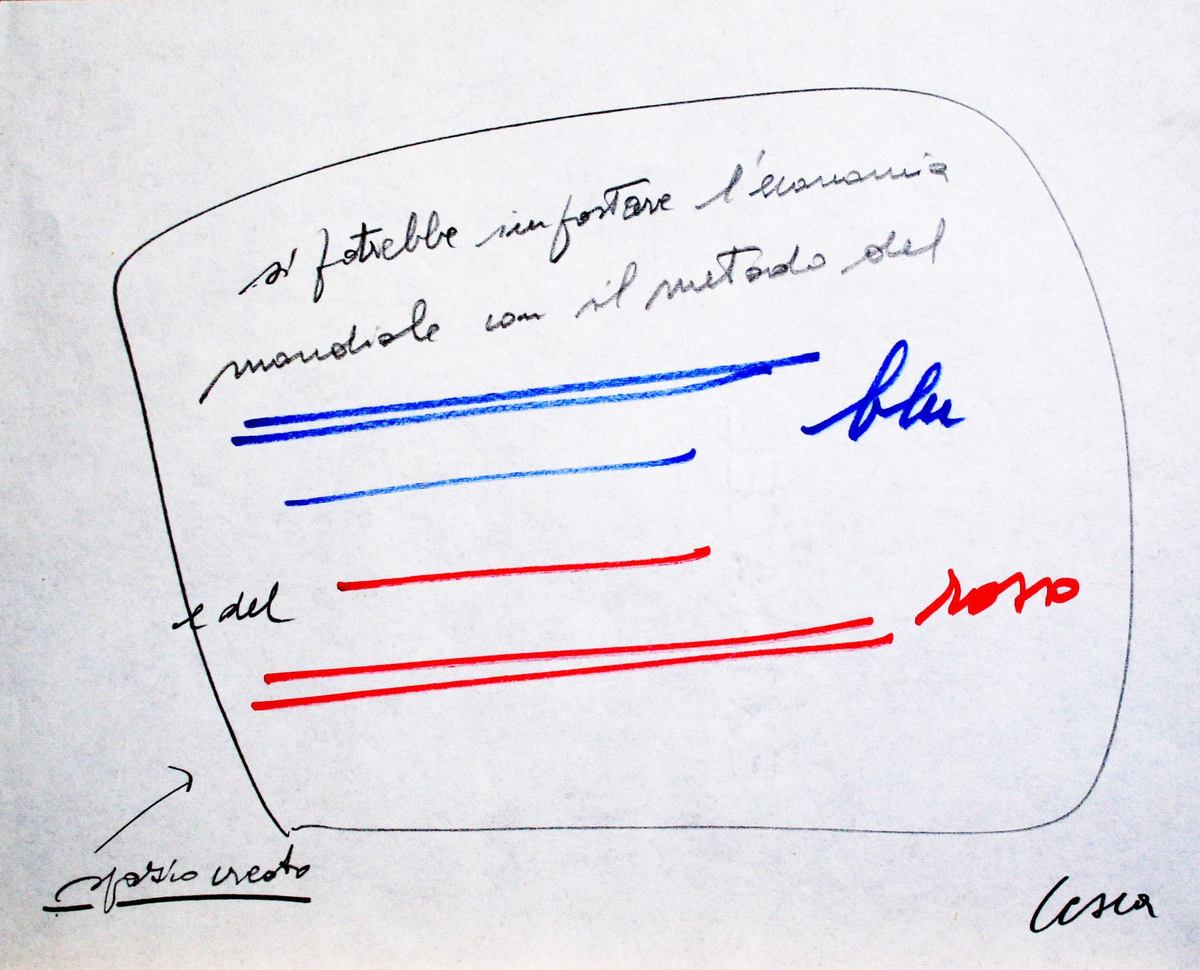 si potrebbe impostare l'economia
mondiale con il metodo del
blu
e del
rosso
spazio creato